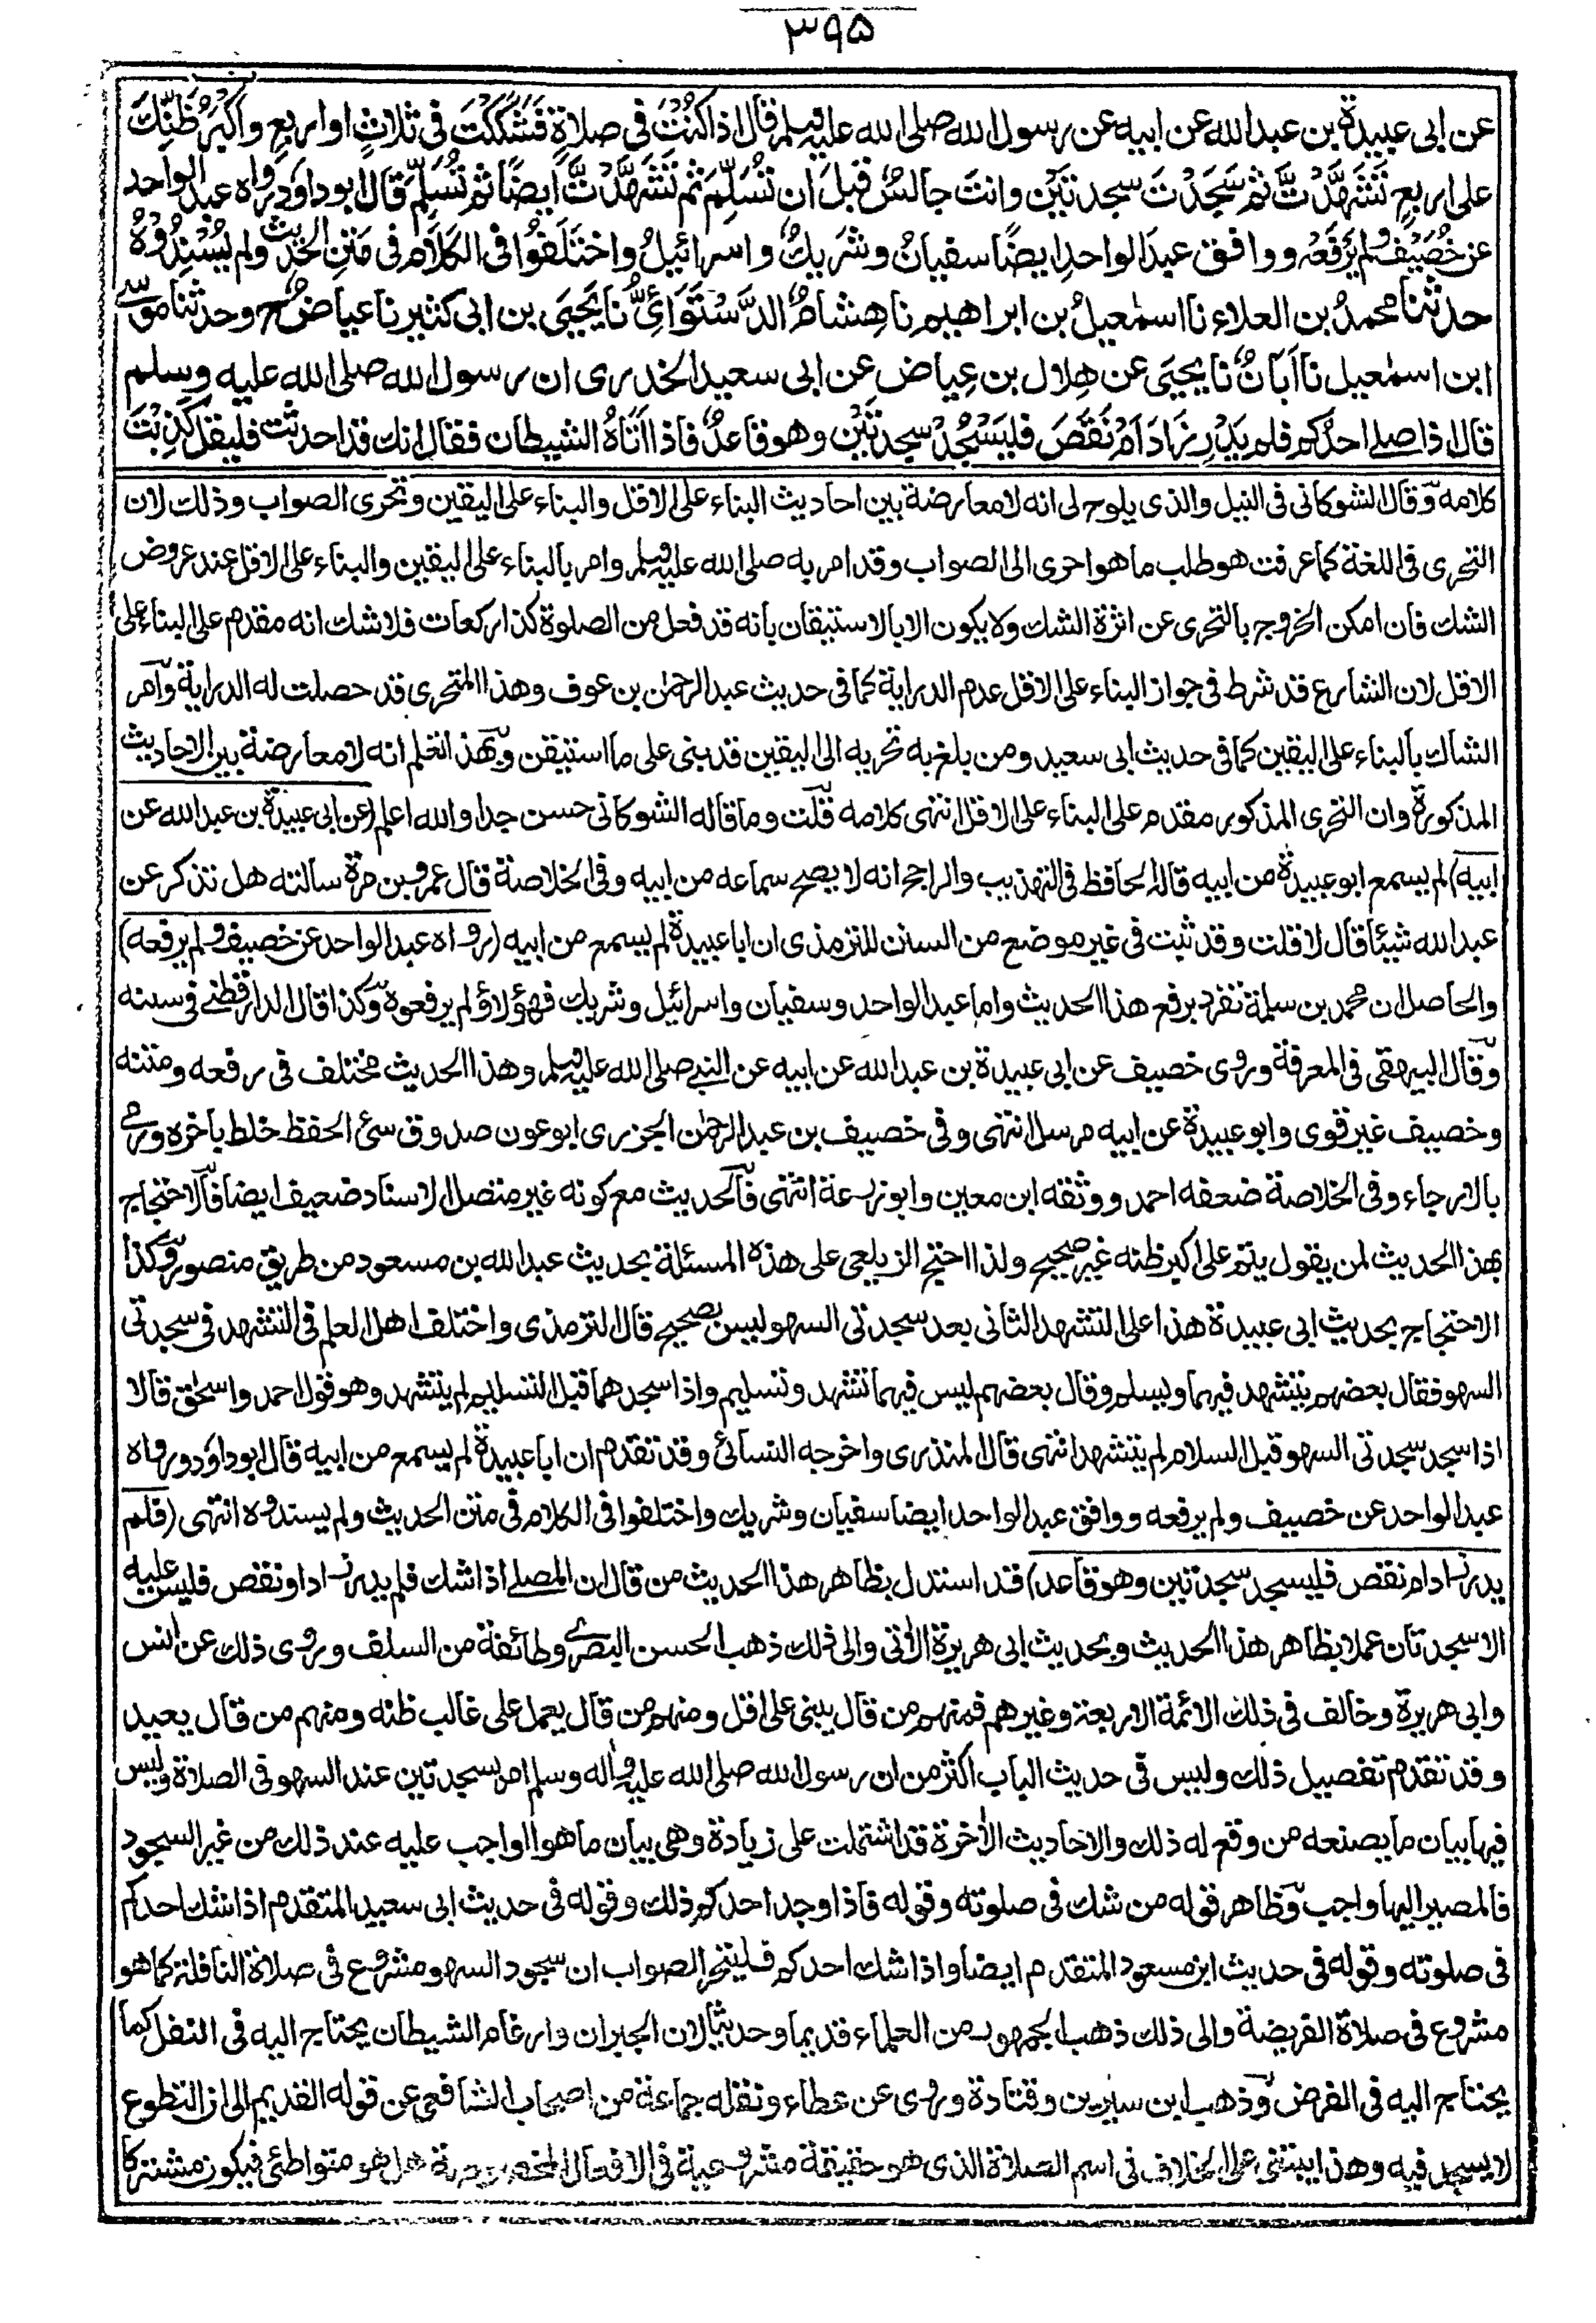 ٣٩٥
عن ابى عبيدة بن عبد الله عن ابيه عن رسول الله صلى الله عليه وسلم قال اذا كُنْتَ فى صلاةٍ فَشَكَكْتَ فى ثلاثٍ او اربعٍ واكبرُ ظَنِّكَ
على اربعٍ تَشَهَّدْتَّ ثم سَجَدْتَ سجدتَيْن وانتَ جالسٌ قبلَ ان تُسَلِّمَ ثم تَشَهَّدْتَّ ايضًا ثم تُسَلِّمُ قال ابو داود رواه عبد الواحد
عن خُصَيْفٍ ولم يَرْفَعْه ووافق عبدَ الواحدِ ايضًا سفيانُ وشَرِيكٌ واسرائيلُ واختلَفُوا فى الكلام فى مَتْنِ الحديث ولم يُسْنِدُوهُ
حدثنا محمدُ بن العلاء نا اسمٰعيلُ بن ابراهيم نا هِشامٌ الدَّسْتَوَائِىُّ نا يَحْيَى بن ابى كثير نا عياضٌ ح وحدثنا موسى
ابن اسمٰعيل نا اَبَانٌ نا يحيَى عن هِلال بن عِياض عن ابى سعيد الخدرى ان رسول الله صلى الله عليه وسلم
قال اذا صلے احدُكم فلم يَدْرِ زَادَ اَمْ نَقَصَ فليَسْجُدْ سجدتَيْن وهو قاعدٌ فاذا اَتَاهُ الشيطان فقال انك قد احدثت فليقل كَذِبْتَ
كلامه وقال الشوكانى فى النيل والذى يلوح لى انه لا معارضة بين احاديث البناء على الاقل والبناء على اليقين وتحرى الصواب وذلك لان
التحرى فى اللغة كما عرفت هو طلب ما هو احرى الى الصواب وقد امر به صلى الله عليه وسلم وامر بالبناء على اليقين والبناء على الاقل عند عروض
الشك فان امكن الخروج بالتحرى عن اثرة الشك ولا يكون الا بالاستيقان بانه قد فعل من الصلوة كذا ركعات فلا شك انه مقدم على البناء على
الاقل لان الشارع قد شرط فى جواز البناء على الاقل عدم الدراية كما فى حديث عبد الرحمٰن بن عوف وهذا المتحرى قد حصلت له الدراية وامر
الشاك بالبناء على اليقين كما فى حديث ابى سعيد ومن بلغ به تحريه الى اليقين قد بنى على ما استيقن وبهذا تعلم انه لا معارضة بين الاحاديث
المذكورة وان التحرى المذكور مقدم على البناء على الاقل انتهى كلامه قلت وما قاله الشوكانى حسن جدا والله اعلم (عن ابى عبيدة بن عبد الله عن
ابيه) لم يسمع ابو عبيدة من ابيه قاله الحافظ فى التهذيب والراجح انه لا يصح سماعه من ابيه وفى الخلاصة قال عمرو بن مرة سالته هل تذكر عن
عبد الله شيئا قال لا قلت وقد ثبت فى غير موضع من السنن للترمذى ان ابا عبيدة لم يسمع من ابيه (رواه عبد الواحد عن خصيف ولم يرفعه)
والحاصل ان محمد بن سلمة تفرد برفع هذا الحديث واما عبد الواحد وسفيان واسرائيل وشريك فهؤلاء لم يرفعوه وكذا قال الدارقطنے فى سننه
وقال البيهقى فى المعرفة وروى خصيف عن ابى عبيدة بن عبد الله عن ابيه عن النبے صلى الله عليه وسلم وهذا الحديث مختلف فى رفعه ومتنه
وخصيف غير قوى وابو عبيدة عن ابيه مرسل انتهى وفى خصيف بن عبد الرحمٰن الجزرى ابو عون صدوق سئ الحفظ خلط باٰخره ورمى
بالارجاء وفى الخلاصة ضعفه احمد ووثقه ابن معين وابو زرعة انتهى فالحديث مع كونه غير متصل الاسناد ضعيف ايضا فالاحتجاج
بهذا الحديث لمن يقول يتم على اكبر ظنه غير صحيح ولذا احتج الزيلعى على هذه المسئلة بحديث عبد الله بن مسعود من طريق منصور وكذا
الاحتجاج بحديث ابى عبيدة هذا على التشهد الثانى بعد سجدتى السهو ليس بصحيح قال الترمذى واختلف اهل العلم فى التشهد فى سجدتى
السهو فقال بعضهم يتشهد فيهما ويسلم وقال بعضهم ليس فيهما تشهد وتسليم واذا سجدهما قبل التسليم لم يتشهد وهو قول احمد واسحٰق قالا
اذا سجد سجدتى السهو قبل السلام لم يتشهد انتهى قال المنذرى واخرجه النسائى وقد تقدم ان ابا عبيدة لم يسمع من ابيه قال ابو داود ورواه
عبد الواحد عن خصيف ولم يرفعه ووافق عبد الواحد ايضا سفيان وشريك واختلفوا فى الكلام فى متن الحديث ولم يسندوه انتهى (فلم
يدر زاد ام نقص فليسجد سجدتين وهو قاعد) قد استدل بظاهر هذا الحديث من قال ان المصلے اذا شك فلم يدر زاد او نقص فليس عليه
الا سجدتان عملا بظاهر هذا الحديث وبحديث ابى هريرة الاٰتى والى ذلك ذهب الحسن البصرے وطائفة من السلف وروى ذلك عن انس
وابى هريرة وخالف فى ذلك الائمة الاربعة وغيرهم فمنهم من قال يبنى على اقل ومنهم من قال يعمل على غالب ظنه ومنهم من قال يعيد
وقد تقدم تفصيل ذلك وليس فى حديث الباب اكثر من ان رسول الله صلى الله عليه واٰله وسلم امر بسجدتين عند السهو فى الصلاة وليس
فيها بيان ما يصنعه من وقع له ذلك والاحاديث الاٰخرة قد اشتملت على زيادة وهى بيان ما هو الواجب عليه عند ذلك من غير السجود
فالمصير اليها واجب وظاهر قوله من شك فى صلوته وقوله فاذا وجد احدكم ذلك وقوله فى حديث ابى سعيد المتقدم اذا شك احدكم
فى صلوته وقوله فى حديث ابن مسعود المتقدم ايضا واذا شك احدكم فليتحر الصواب ان سجود السهو مشروع فى صلاة النافلة كما هو
مشروع فى صلاة الفريضة والى ذلك ذهب الجمهور من العلماء قديما وحديثا لان الجبران وارغام الشيطان يحتاج اليه فى النفل كما
يحتاج اليه فى الفرض وذهب ابن سيرين وقتادة وروى عن عطاء ونقله جماعة من اصحاب الشافعى عن قوله القديم الى ان التطوع
لا يسجد فيه وهذا ايبتنى على الخلاف فى اسم الصلاة الذى هو حقيقة مشروعية فى الافعال المخصوصة هل هو متواطئ فيكون مشتركا